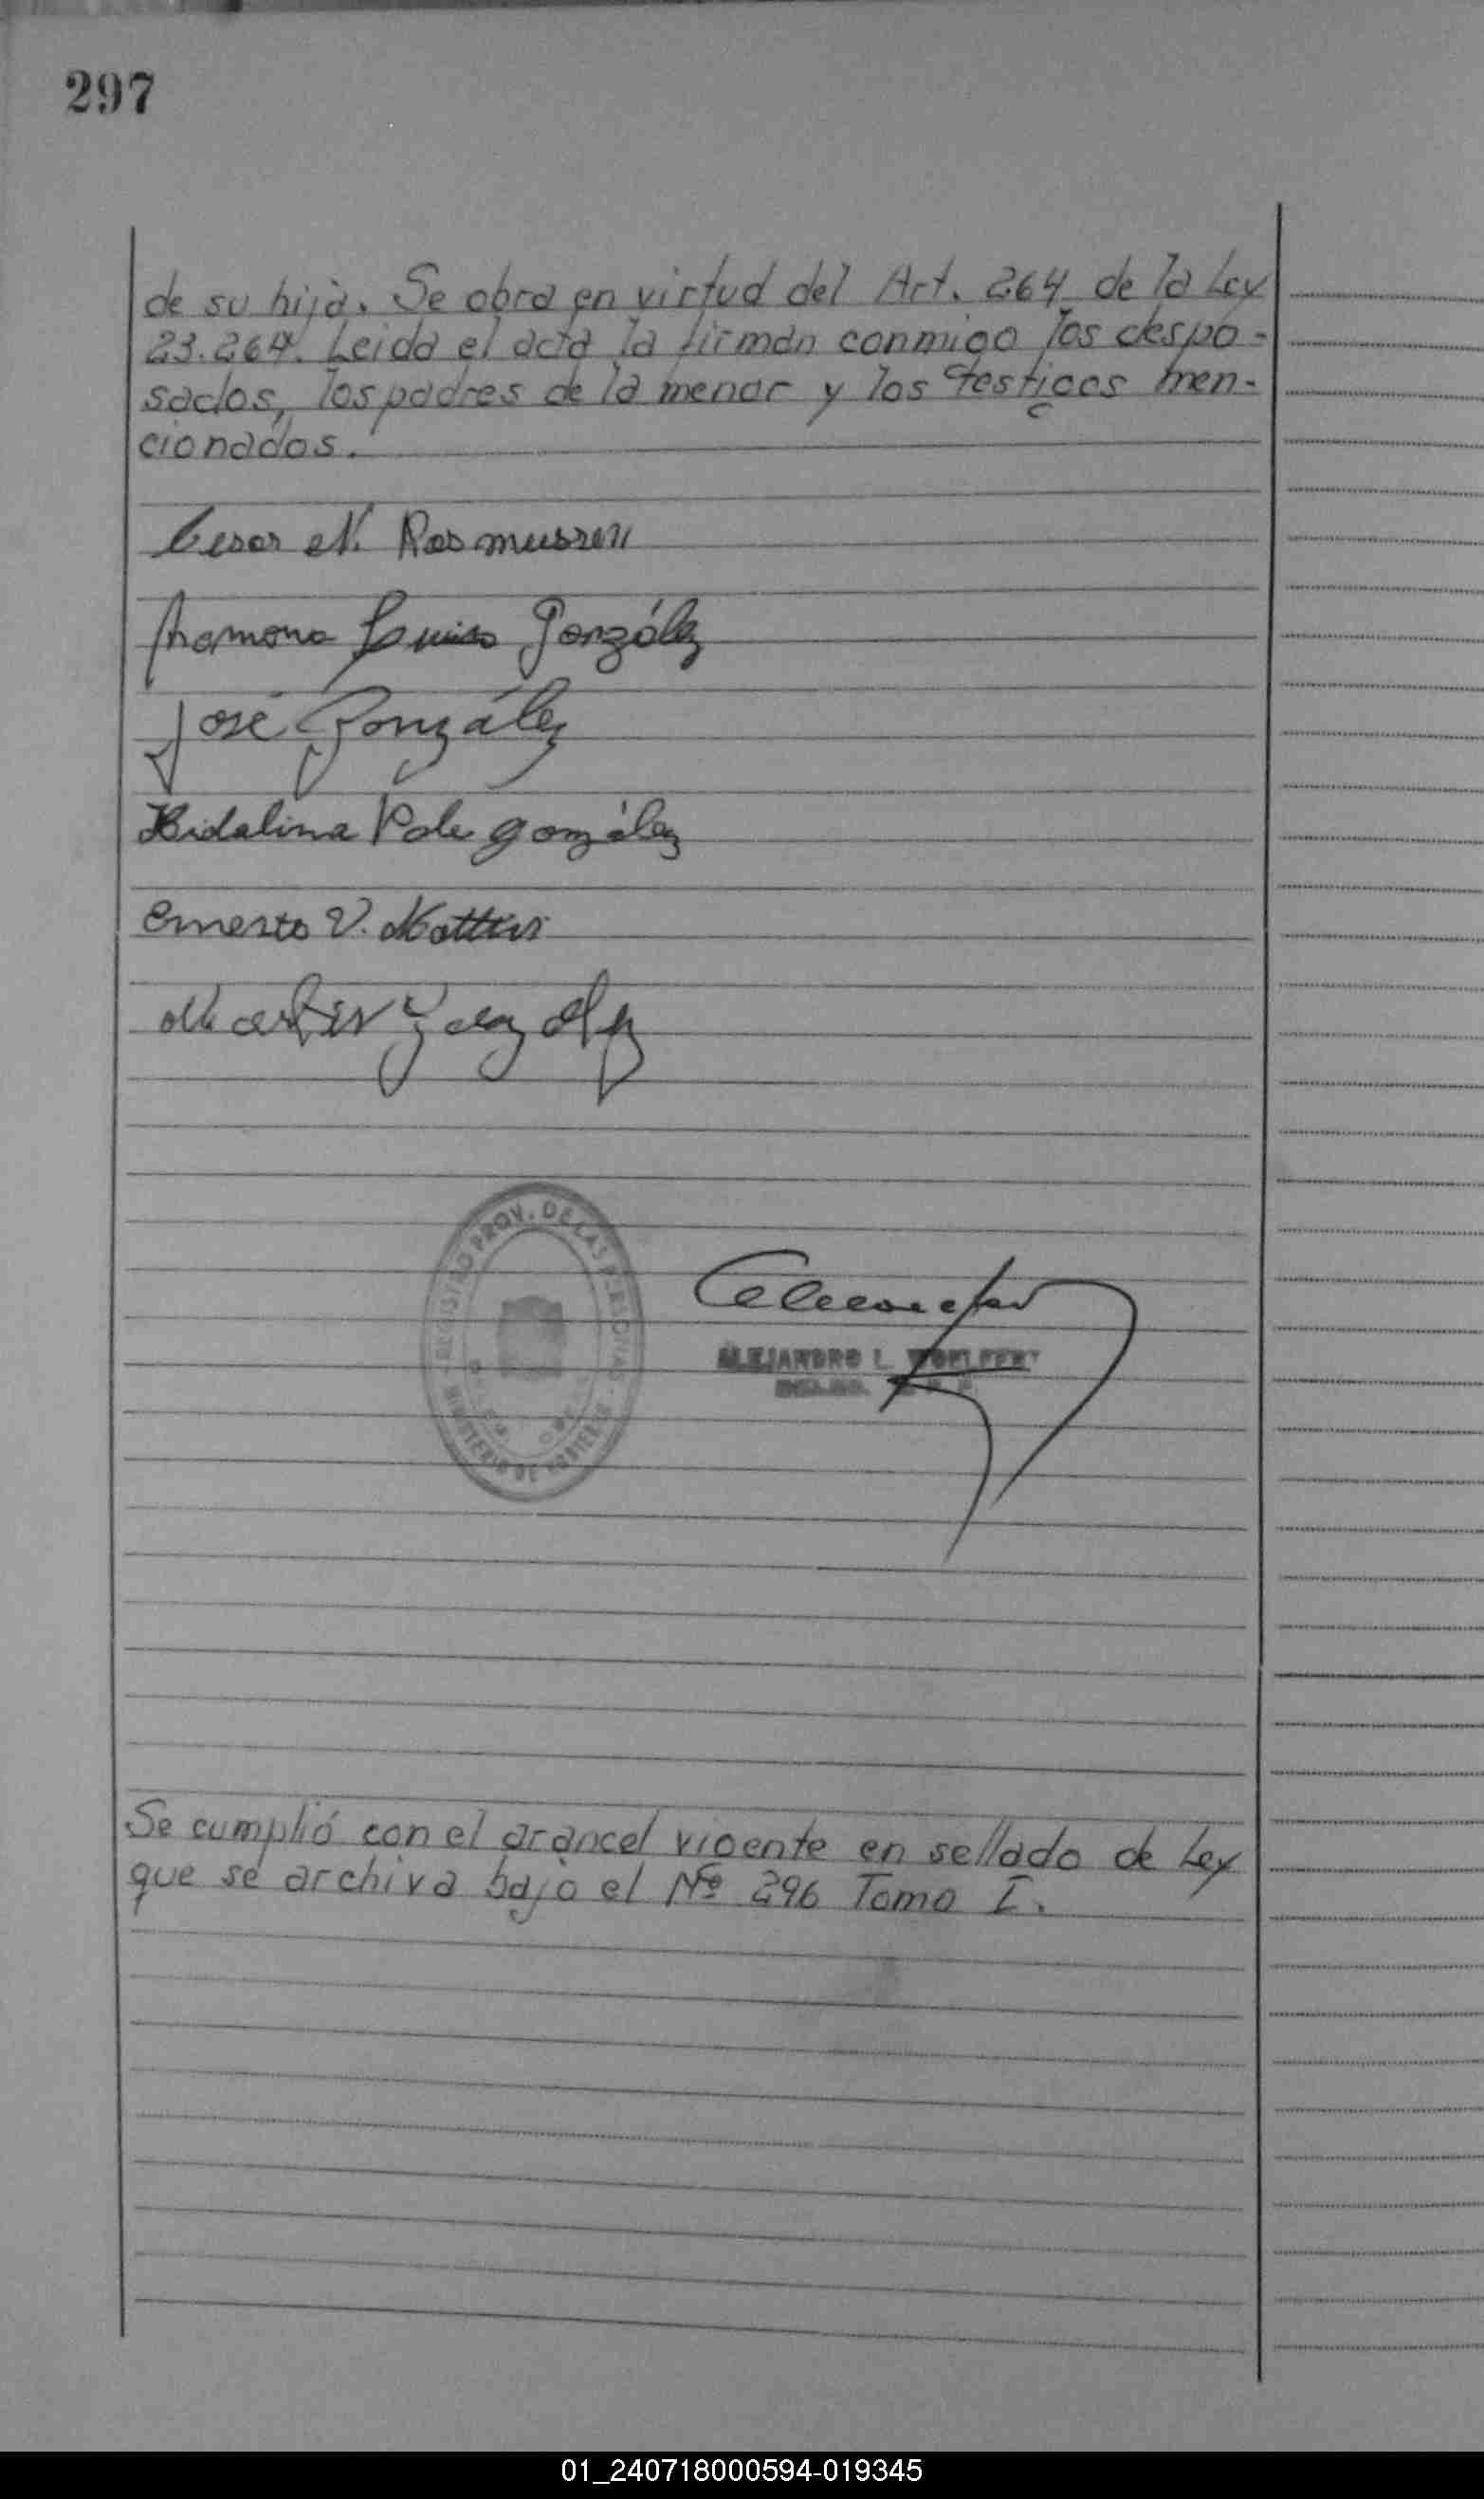 297
de su hija. Se obra en virtud del Art. 264 de la Ley
23.264. Leida el acta la firman conmigo los despo-
sados, los padres de la menor y los testigos men-
cionados.
Cesar N. Rasmussen
Ramona Luisa González
José González
Hidalina González
Ernesto V.
Martin Gonzalez
REGISTRO PROV. DE LAS PERSONAS
MINISTERIO DE GOBIERNO
ALEJANDRO L.
Se cumplió con el arancel vigente en sellado de Ley
que se archiva bajo el Nº 296 Tomo I.
01_240718000594-019345